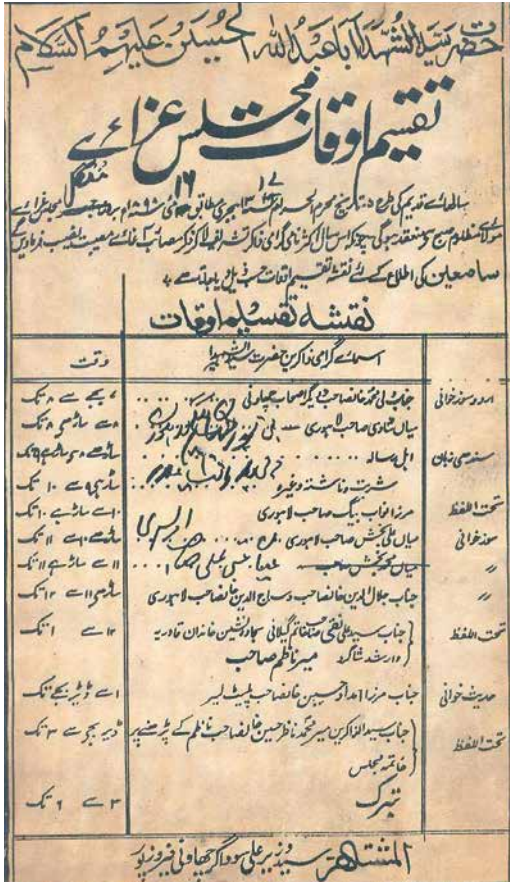 حضرت سید الشہدا ابا عبداللہ الحسین علیہم السلام
تقسیم اوقات مجلس عزائے
سالہائے قدیم کی طرح بتاریخ محرم الحرام ہجری مطابق مئی ۱۸۹۸ء بروز مجلس عزائے
مولائے مظلوم صبح منعقد ہوگی چونکہ اس سال اکثر نامی گرامی ذاکر تشریف لا کر ذکر مصائب فرماویں گے
سامعین کی اطلاع کے لئے نقشہ تقسیم اوقات حسب ذیل دیا جاتا ہے
نقشہ تقسیم اوقات
اسمائے گرامی ذاکرین حضرت سید الشہدا وقت
اردو سوز خوانی جناب علی محمد خانصاحب و دیگر اصحاب چھاونی بجے سے ۸ تک
میاں شادی صاحب لاہوری ۸ سے ساڑھے ۸ تک
سندھی زبان اہل رسالہ ساڑھے ۸ سے ساڑھے ۹ تک
شربت و ناشتہ وغیرہ ساڑھے ۹ سے ۱۰ تک
تحت اللفظ مرزا نواب بیگ صاحب لاہوری ۱۰ سے ساڑھے ۱۰ تک
سوز خوانی میاں علی بخش صاحب لاہوری ساڑھے ۱۰ سے ۱۱ تک
〃 میاں محمد بخش صاحب ۱۱ سے ساڑھے ۱۱ تک
〃 جناب جلال الدین خانصاحب و سراج الدین خانصاحب لاہوری ساڑھے ۱۱ سے ۱۲ تک
تحت اللفظ جناب سید علی نقی صاحب خاتم گیلانی سجادہ نشین خاندان قادریہ ۱۲ سے ۱ تک
وارشد شاگرد میر ناظم صاحب
حدیث خوانی جناب مرزا امداد حسین خانصاحب پلیڈر ۱ سے ڈیڑھ بجے تک
تحت اللفظ جناب سید الذاکرین میر محمد ناظر حسین خانصاحب ناظم کے پڑھنے پر ڈیڑھ بجے سے ۳ تک
خاتمہ مجلس
تبرک ۳ سے ۶ تک
المشتہر سید وزیر علی سوداگر چھاونی فیروزپور